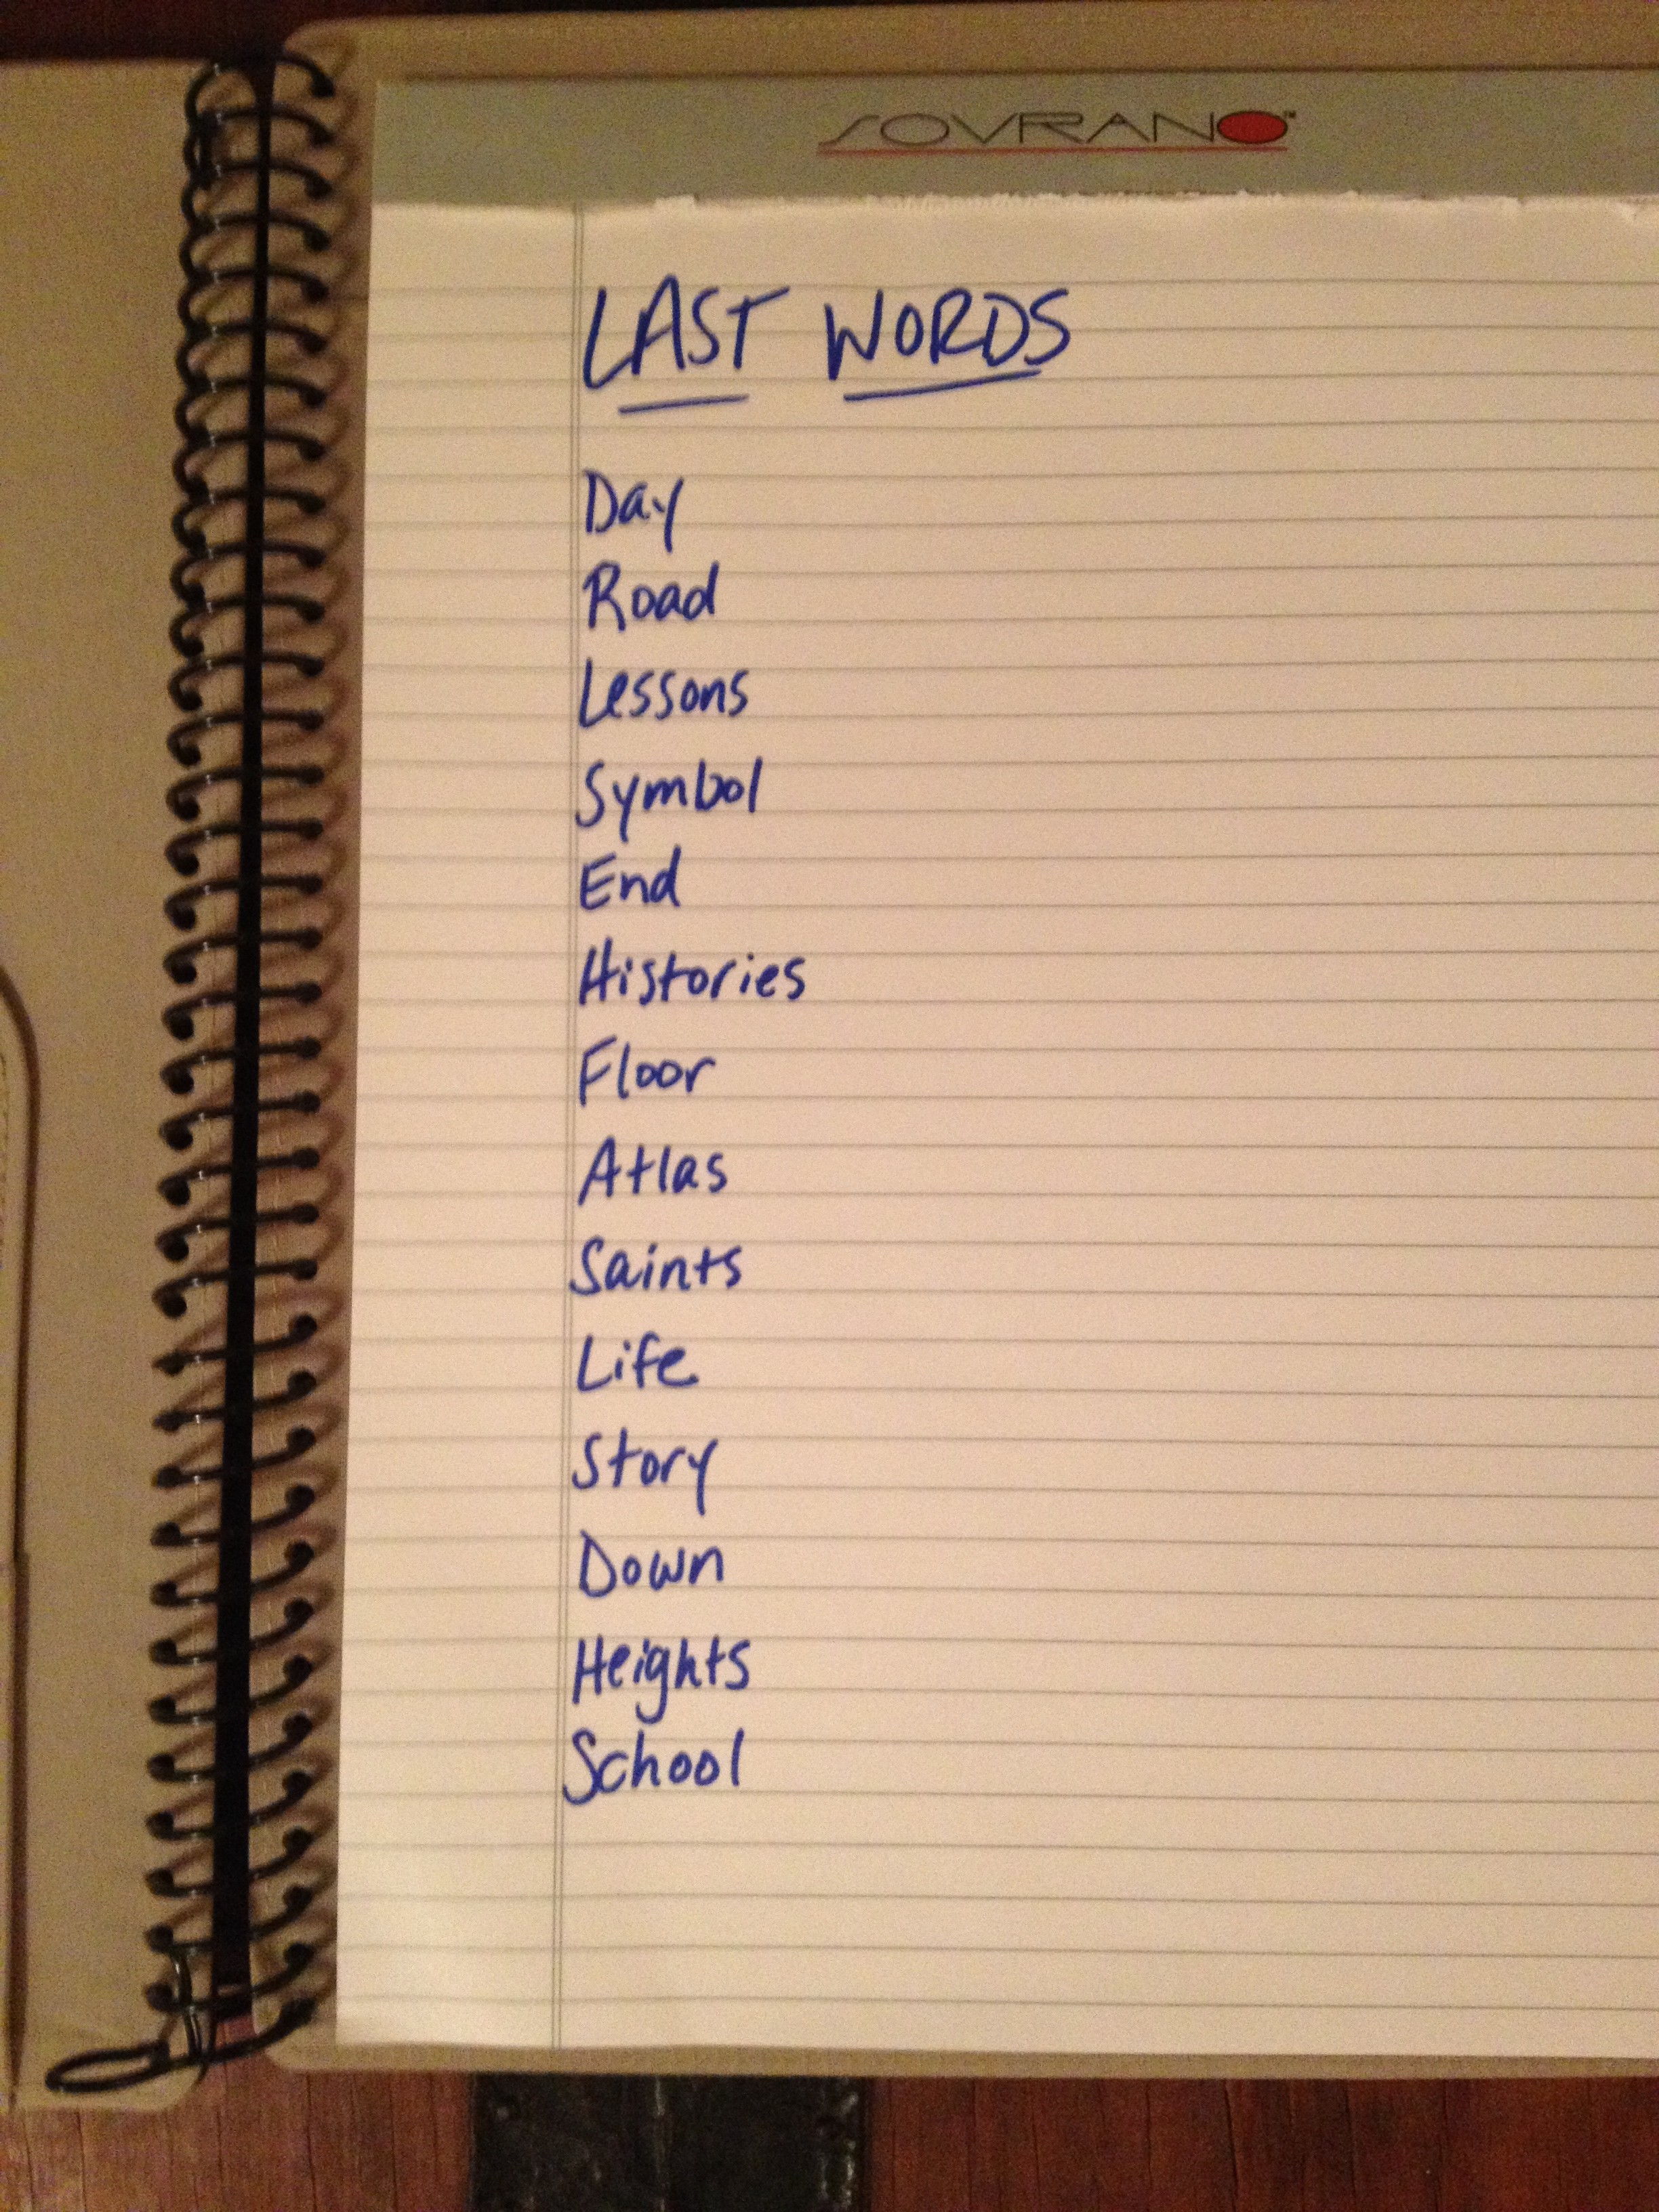 SOVRANO™
LAST WORDS
Day
Road
Lessons
Symbol
End
Histories
Floor
Atlas
Saints
Life
Story
Down
Heights
School